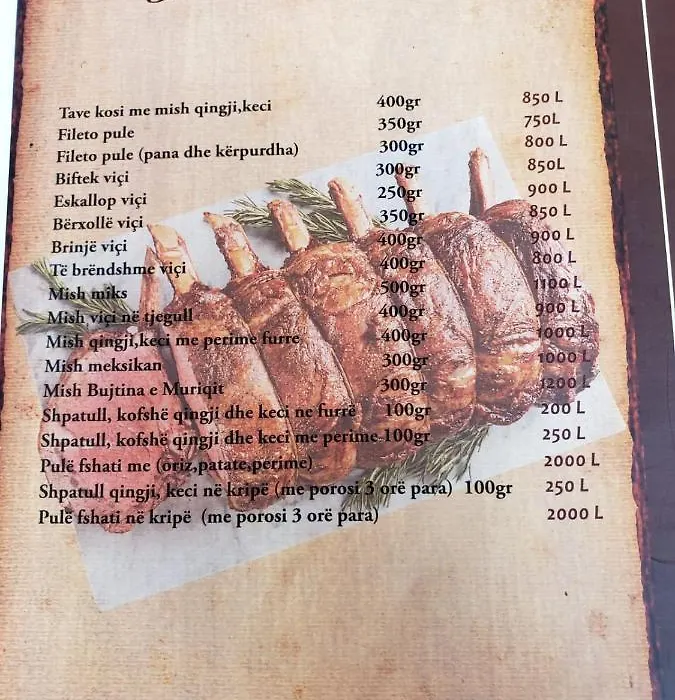 Tave kosi me mish qingji,keci 400gr 850 L
Fileto pule 350gr 750L
Fileto pule (pana dhe kërpurdha) 300gr 800 L
Biftek viçi 300gr 850L
Eskallop viçi 250gr 900 L
Bërxollë viçi 350gr 850 L
Brinjë viçi 400gr 900 L
Të brëndshme viçi 400gr 800 L
Mish miks 500gr 1100 L
Mish viçi në tjegull 400gr 900 L
Mish qingji,keci me perime furre 400gr 1000 L
Mish meksikan 300gr 1000 L
Mish Bujtina e Muriqit 300gr 1200 L
Shpatull, kofshë qingji dhe keci ne furrë 100gr 200 L
Shpatull, kofshë qingji dhe keci me perime 100gr 250 L
Pulë fshati me (oriz,patate,perime) 2000 L
Shpatull qingji, keci në kripë (me porosi 3 orë para) 100gr 250 L
Pulë fshati në kripë (me porosi 3 orë para) 2000 L